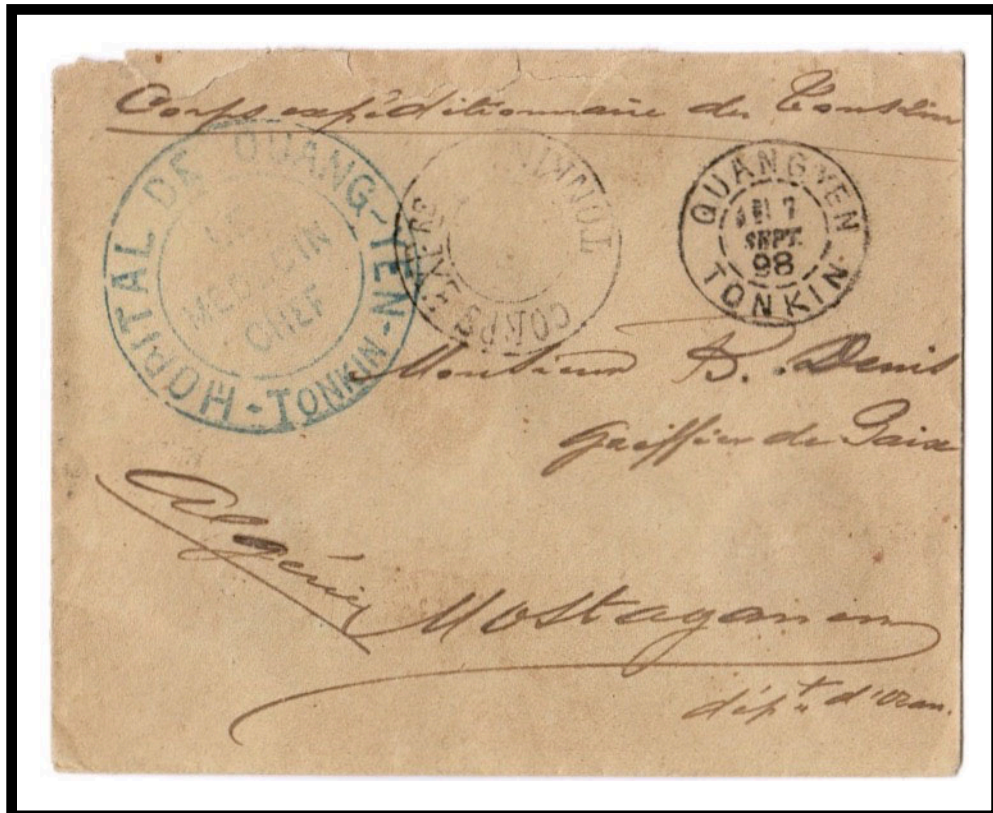 Corps expéditionnaire du Tonkin
HOPITAL DE QUANG-YEN-TONKIN-
LE
MEDECIN
CHEF
CORPS EXP. TONKIN
QUANG YEN
7
SEPT.
98
TONKIN
Monsieur B. Denis
Greffier de Paix
Algérie
Mostaganem
dép.t d'Oran.